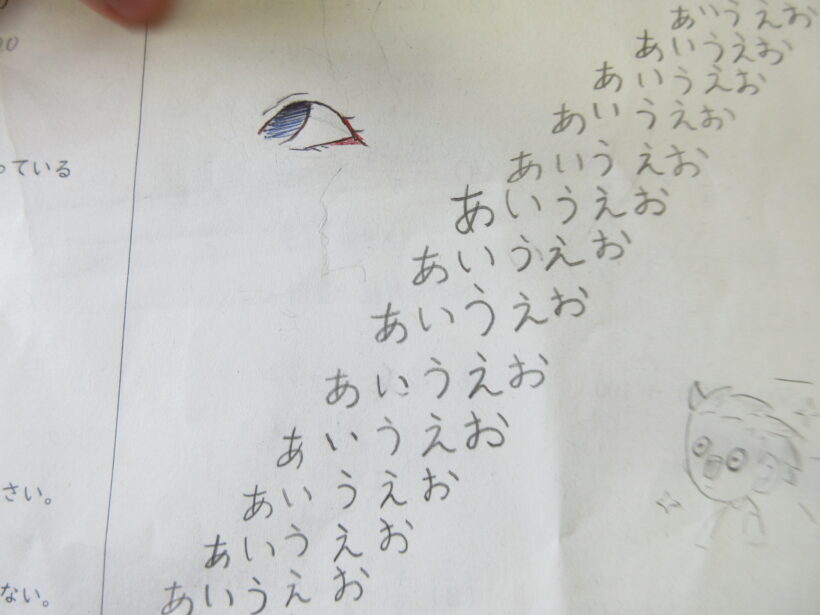 20
っている
さい。
ない。
あいうえお
あいうえお
あいうえお
あいうえお
あいうえお
あいうえお
あいうえお
あいうえお
あいうえお
あいうえお
あいうえお
あいうえお
あいうえお